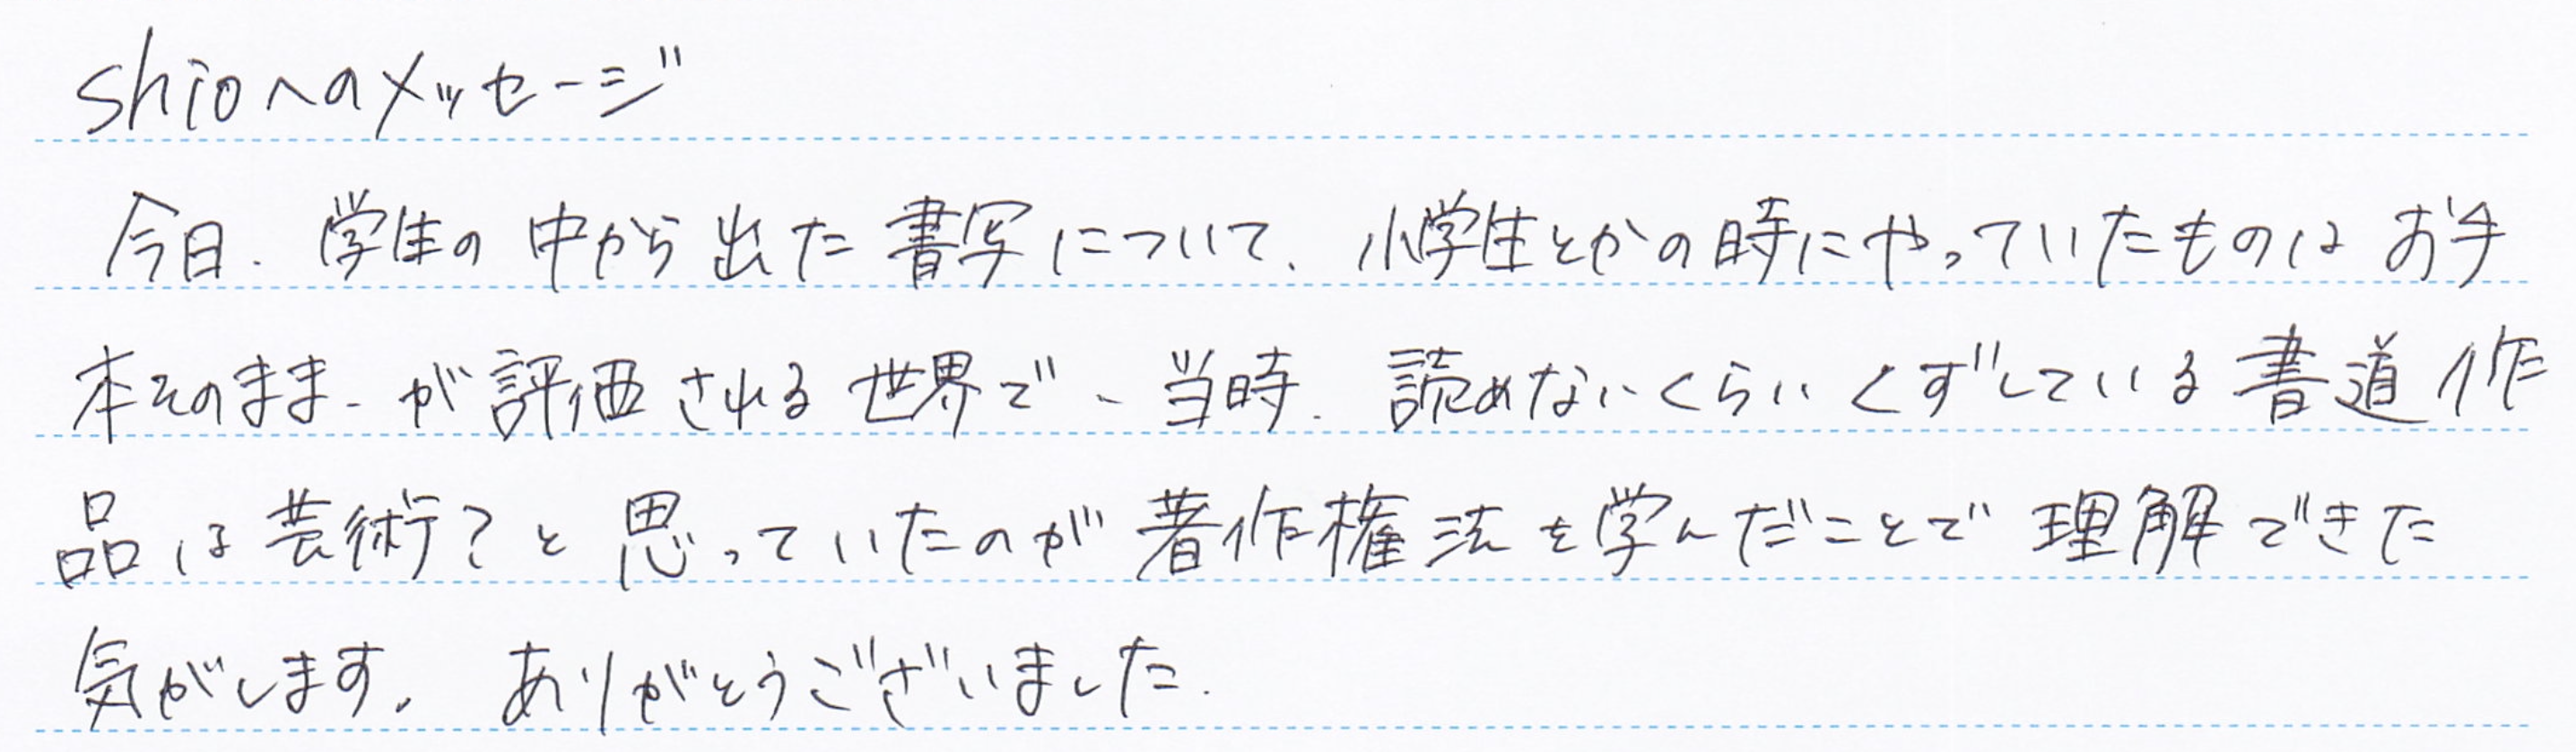 shioへのメッセージ
今日、学生の中から出た書写について、小学生とかの時にやっていたものはお手
本そのまま、が評価される世界で、当時、読めないくらいくずしている書道作
品は芸術？と思っていたのが著作権法を学んだことで理解できた
気がします。ありがとうございました。